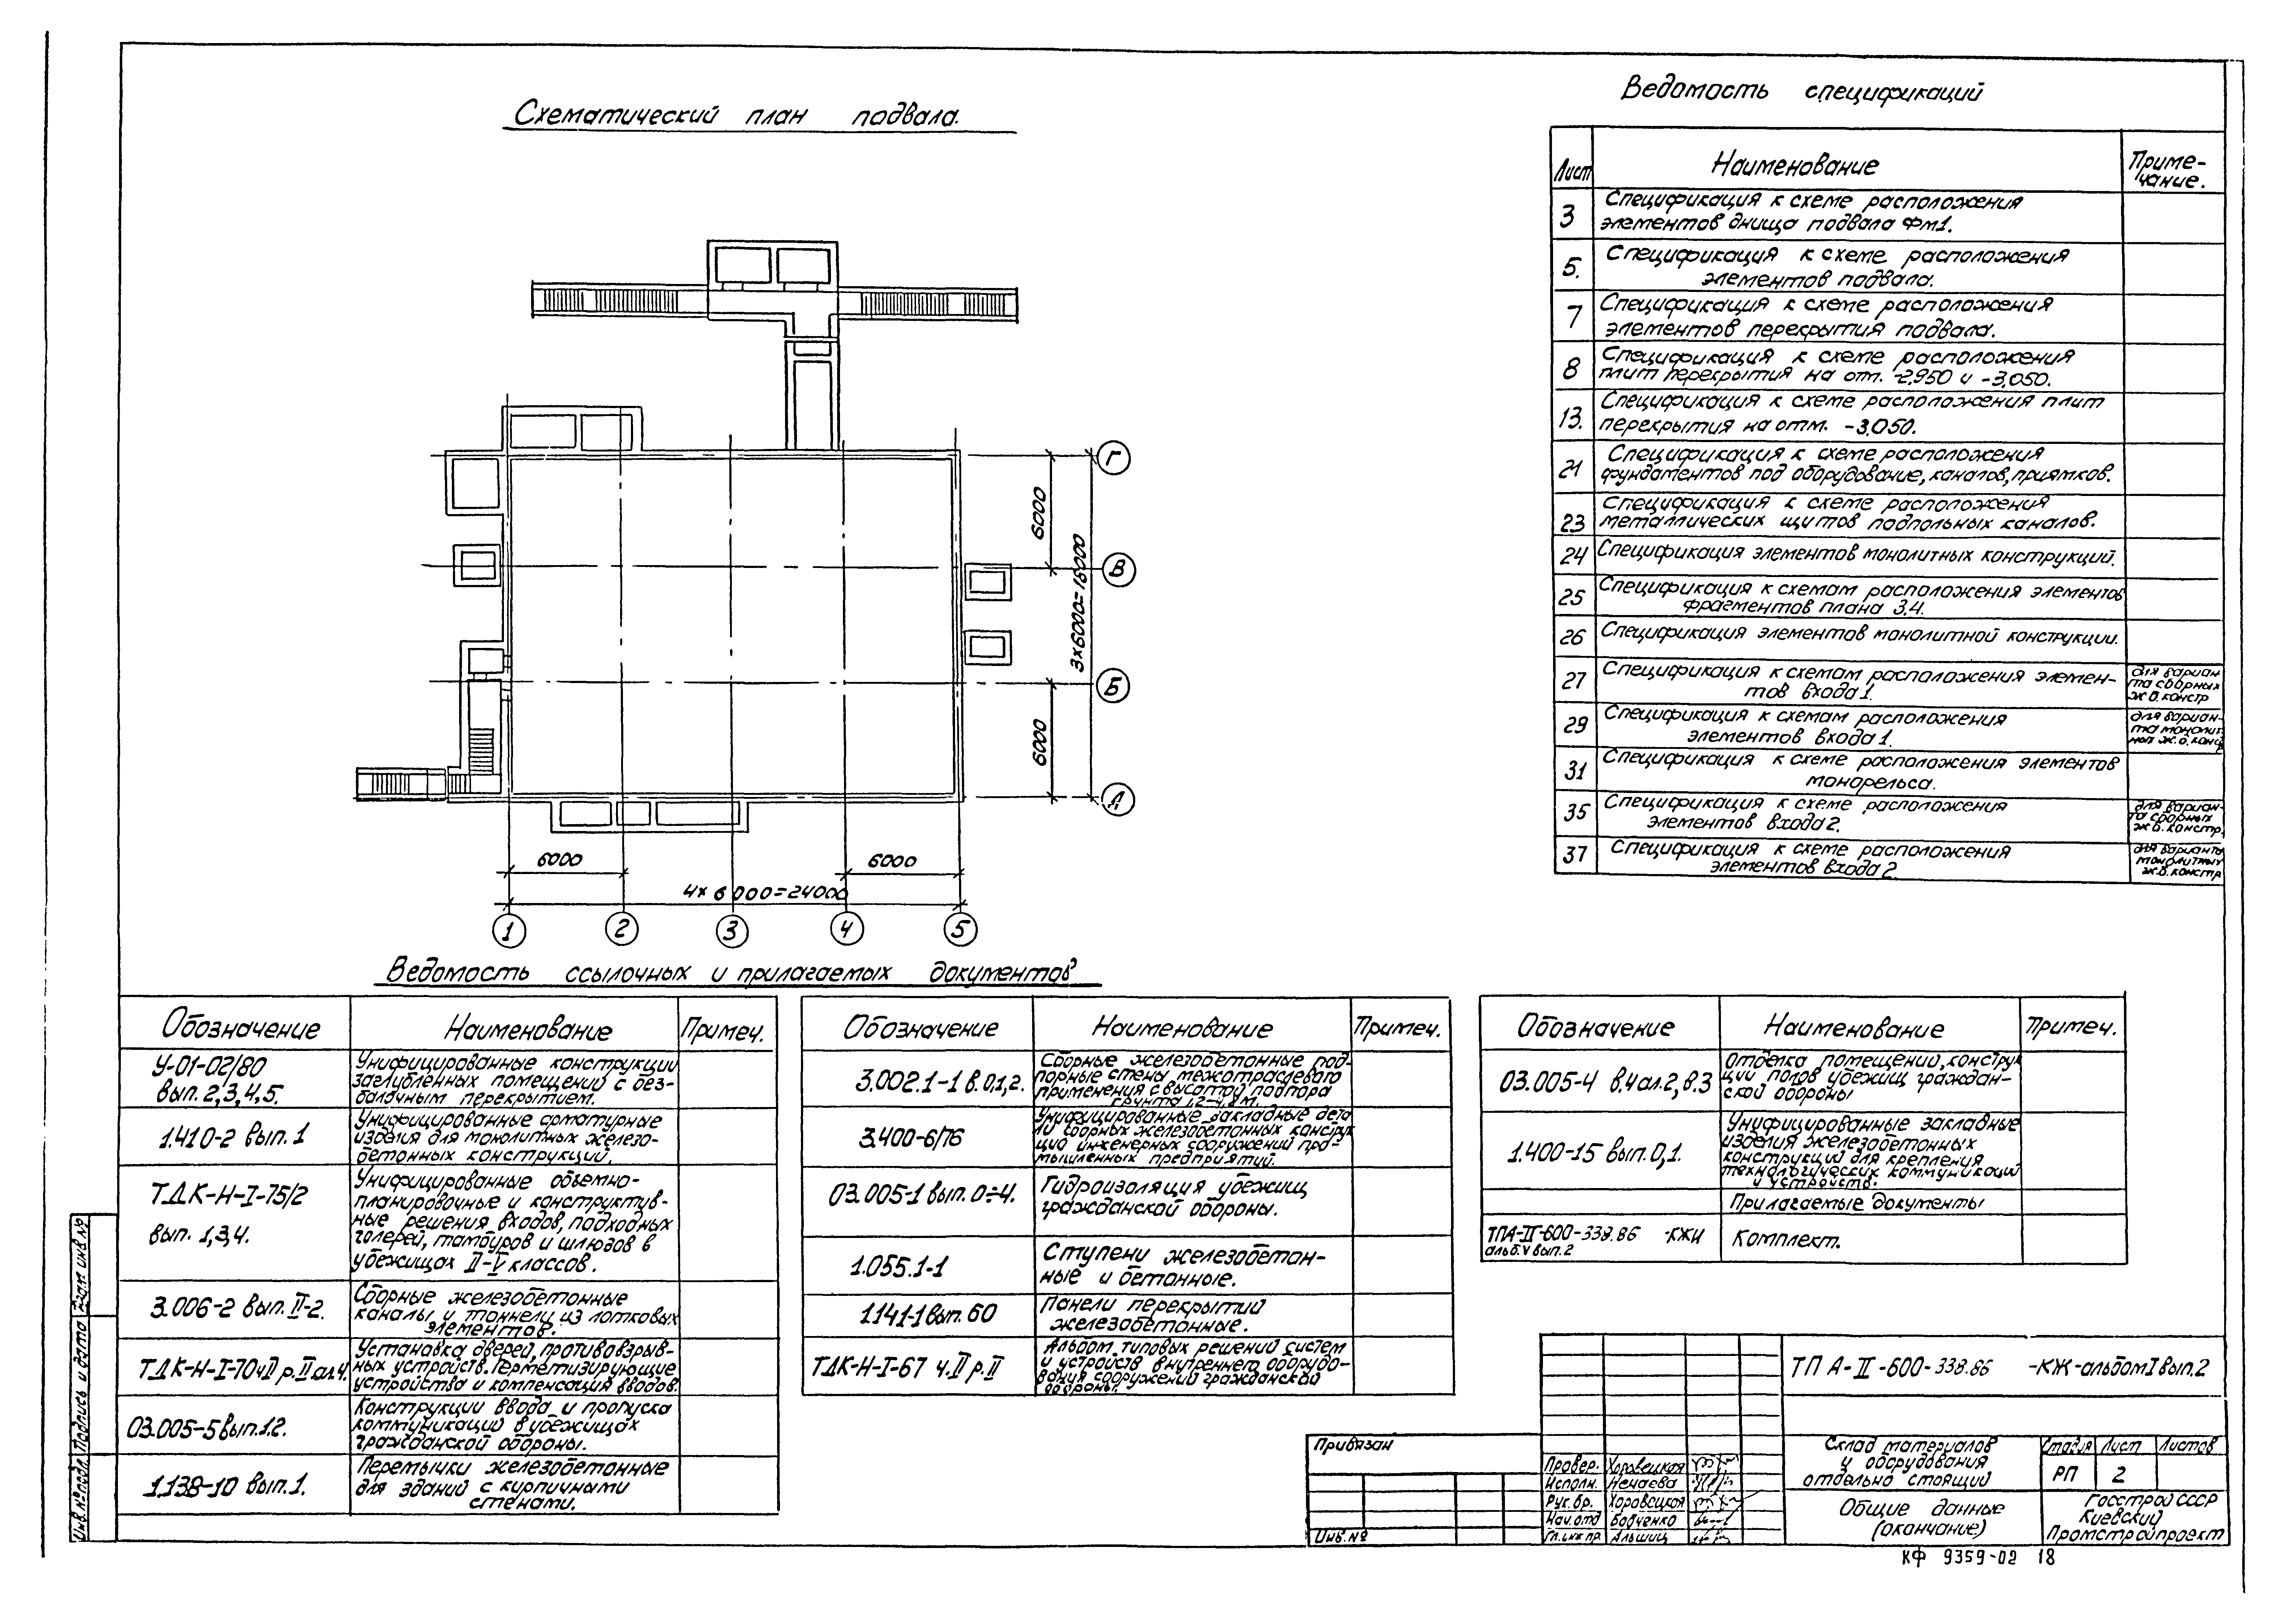 Схематический план подвала.
6000
6000
3×6000=18000
Г
В
Б
А
6000
6000
4×6000=24000
1
2
3
4
5
Ведомость спецификаций
Лист
Наименование
Приме-
чание.
3
Спецификация к схеме расположения
элементов днища подвала Фм1.
5.
Спецификация к схеме расположения
элементов подвала.
7
Спецификация к схеме расположения
элементов перекрытия подвала.
8
Спецификация к схеме расположения
плит перекрытия на отм. -2,950 и -3,050.
13.
Спецификация к схеме расположения плит
перекрытия на отм. -3,050.
21
Спецификация к схеме расположения
фундаментов под оборудование, каналов, приямков.
23
Спецификация к схеме расположения
металлических щитов подпольных каналов.
24
Спецификация элементов монолитных конструкций.
25
Спецификация к схемам расположения элементов
фрагментов плана 3,4.
26
Спецификация элементов монолитной конструкции.
27
Спецификация к схемам расположения элемен-
тов входа 1.
для вариан
та сборных
ж.б. констр
29
Спецификация к схемам расположения
элементов входа 1.
для вариан-
та монолит
ж.б. конс
31
Спецификация к схеме расположения элементов
монорельса.
35
Спецификация к схеме расположения
элементов входа 2.
для вариан-
та сборных
ж.б. констр.
37
Спецификация к схеме расположения
элементов входа 2
для варианта
монолитных
ж.б. констр
Ведомость ссылочных и прилагаемых документов
Обозначение
Наименование
Примеч.
У-01-02/80
вып. 2,3,4,5.
Унифицированные конструкции
заглубленных помещений с без-
балочным перекрытием.
1.410-2 вып. 1
Унифицированные арматурные
изделия для монолитных железо-
бетонных конструкций.
ТДК-Н-I-75/2
вып. 1,3,4.
Унифицированные объемно-
планировочные и конструктив-
ные решения входов, подходных
галерей, тамбуров и шлюзов в
убежищах II-V классов.
3.006-2 вып. II-2.
Сборные железобетонные
каналы и тоннели из лотковых
элементов.
ТДК-Н-I-70 ч II р. II ал.4.
Установка дверей, противовзрыв-
ных устройств. Герметизирующие
устройства и компенсация вводов.
03.005-5 вып. 1.2.
Конструкции ввода и пропуска
коммуникаций в убежищах
гражданской обороны.
1.138-10 вып. 1.
Перемычки железобетонные
для зданий с кирпичными
стенами.
Обозначение
Наименование
Примеч.
3.002.1-1 в. 0,1,2.
Сборные железобетонные под-
порные стены межотраслевого
применения с высотой подпора
грунта 1,2-4,8 м.
3.400-6/76
Унифицированные закладные дета
ли сборных железобетонных конструк
ций инженерных сооружений про-
мышленных предприятий.
03.005-1 вып. 0÷4.
Гидроизоляция убежищ
гражданской обороны.
1.055.1-1
Ступени железобетон-
ные и бетонные.
1.141-1 вып. 60
Панели перекрытий
железобетонные.
ТДК-Н-I-67 ч. II р. II
Альбом типовых решений систем
и устройств внутреннего оборудо-
вания сооружений гражданской
обороны.
Обозначение
Наименование
Примеч.
03.005-4 в.4 ал.2, в.3
Отделка помещений, конструк
ции полов убежищ граждан-
ской обороны
1.400-15 вып. 0,1.
Унифицированные закладные
изделия железобетонных
конструкций для крепления
технологических коммуникаций
и устройств.
Прилагаемые документы
ТПА-II-600-338.86 -КЖИ
альб. V вып. 2
Комплект.
Инв.№ подл. Подпись и дата Взам инв №
Привязан
Инв. №
Провер. Хоровецкая
Исполн. Ненаева
Рук. бр. Хоровецкая
Нач. отд Бабченко
Гл. инж пр. Альшиц
ТП А-II-600-338.86 -КЖ-альбом I вып. 2
Склад материалов
и оборудования
отдельно стоящий
Стадия Лист Листов
РП 2
Общие данные
(окончание)
Госстрой СССР
Киевский
Промстройпроект
КФ 9359-02 18